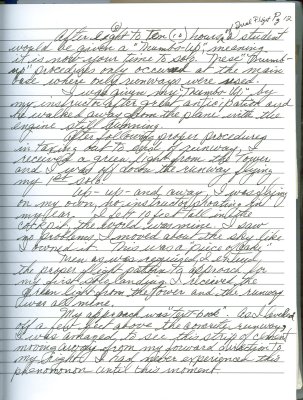 (Dual Flight Pg 12
After eight to ten (10) hours, a student
would be given a "Thumbs-Up", meaning
it is now your time to solo. These "Thumbs-
up" procedures only occurred at the main
base where only runways were used.
I was given my "Thumbs-Up" by
my instructor after great anticipation and
he walked away from the plane with the
engine still running.
After following proper procedures
in taxiing out to end of runway, I
received a green light from the tower
and I was off down the runway flying
my 1st solo!
Up-up-and away, I was flying
on my own, no instructor shouting in
my ear. I felt 10 feet tall in the
cockpit, the world was mine. I saw
no problems, I moved about the sky like
I owned it. This was a "piece of cake".
Then as was required, I entered
the proper flight pattern to approach for
my first solo landing. I received the
green light from the tower and the runway
was all mine.
My approach was text-book. As I leveled
off a few feet above the concrete runway,
I was amazed to see this strip of cement
moving away from my forward direction to
my right! I had never experienced this
phenomonon until this moment.